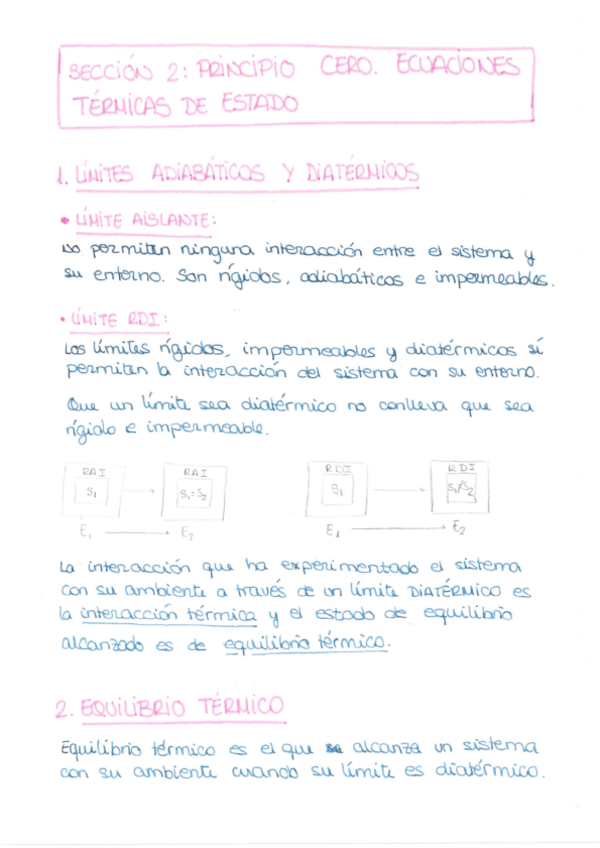 SECCIÓN 2: PRINCIPIO CERO. ECUACIONES
TÉRMICAS DE ESTADO
1. LÍMITES ADIABÁTICOS Y DIATÉRMICOS
• LÍMITE AISLANTE:
No permiten ninguna interacción entre el sistema y
su entorno. Son rígidos, adiabáticos e impermeables.
• LÍMITE RDI:
Los límites rígidos, impermeables y diatérmicos sí
permiten la interacción del sistema con su entorno.
Que un límite sea diatérmico no conlleva que sea
rígido e impermeable.
RAI RAI RDI RDI
S₁ S₁=S₂ S₁ S₁≠S₂
E₁ E₂ E₁ E₂
La interacción que ha experimentado el sistema
con su ambiente a través de un límite DIATÉRMICO es
la interacción térmica y el estado de equilibrio
alcanzado es de equilibrio térmico.
2. EQUILIBRIO TÉRMICO
Equilibrio térmico es el que alcanza un sistema
con su ambiente cuando su límite es diatérmico.